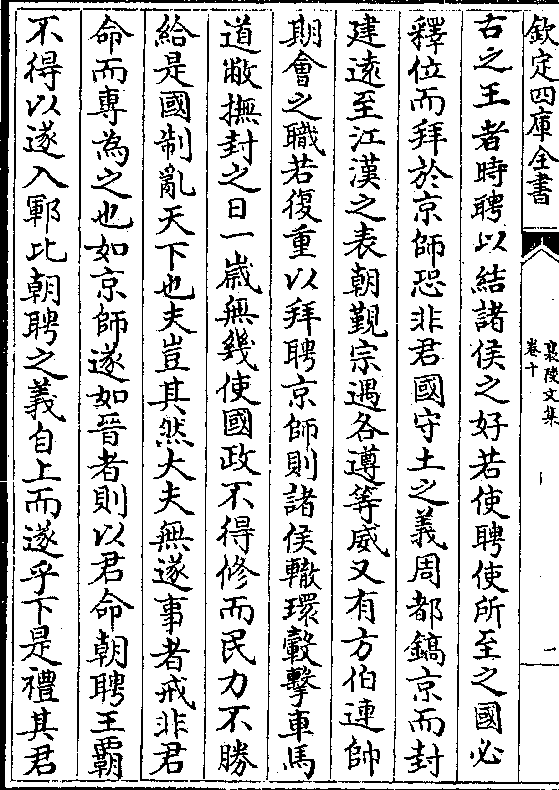 欽定四庫全書
襄陵文集
卷十
一
古之王者時聘以結諸侯之好若使聘使所至之國必
釋位而拜於京師恐非君國守土之義周都鎬京而封
建遠至江漢之表朝覲宗遇各遵等威又有方伯連帥
期會之職若復重以拜聘京師則諸侯轍環轂擊車馬
道敝撫封之日一嵗無幾使國政不得修而民力不勝
給是國制亂天下也夫豈其然大夫無遂事者戒非君
命而專為之也如京師遂如晉者則以君命朝聘王霸
不得以遂入鄆比朝聘之義自上而遂乎下是禮其君